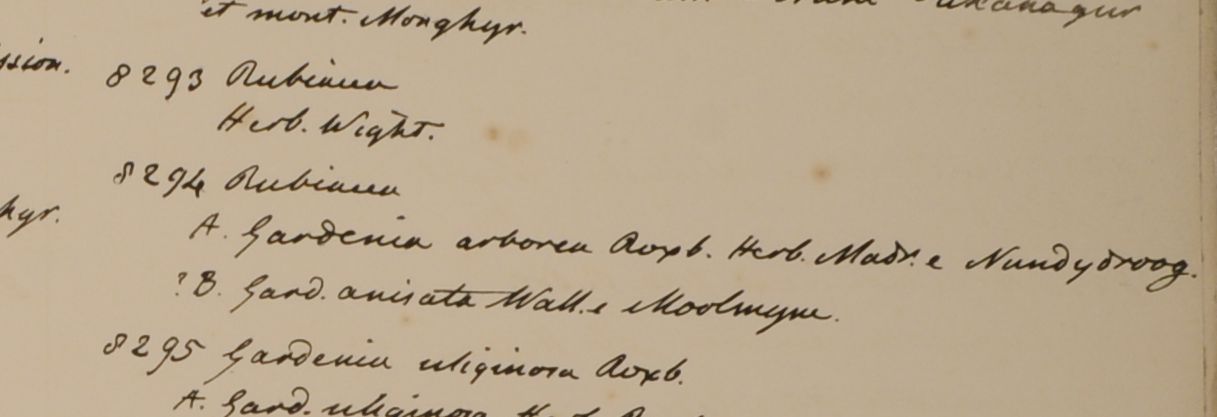 et mont. Monghyr.
8293 Rubiacea
Herb. Wight.
8294 Rubiacea
A. Gardenia arborea Roxb. Herb. Madr. e Nundydroog.
?B. Gard. anisata Wall. e Moolmyne.
8295 Gardenia uliginosa Roxb.
A. Gard. uliginosa